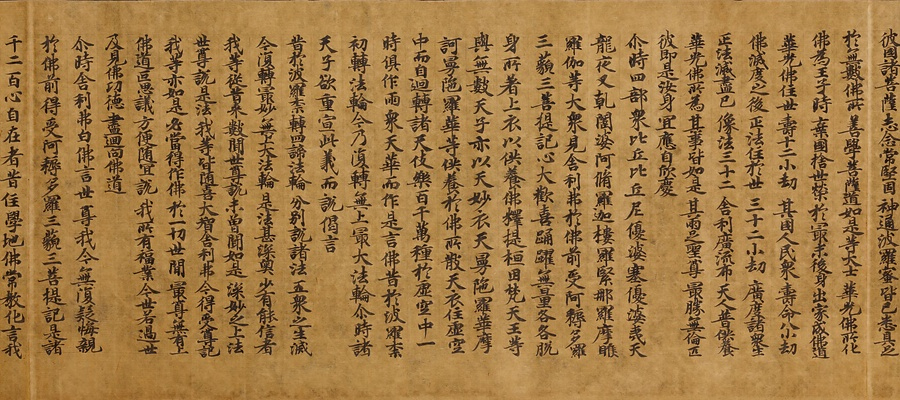 彼國諸菩薩 志念常堅固 神通波羅蜜 皆已悉具足
於無數佛所 善學菩薩道 如是等大士 華光佛所化
佛為王子時 棄國捨世榮 於最末後身 出家成佛道
華光佛住世 壽十二小劫 其國人民衆 壽命八小劫
佛滅度之後 正法住於世 三十二小劫 廣度諸衆生
正法滅盡已 像法三十二 舍利廣流布 天人普供養
華光佛所為 其事皆如是 其兩足聖尊 最勝無倫匹
彼即是汝身 宜應自欣慶
尒時四部衆比丘比丘尼優婆塞優婆夷天
龍夜叉乹闥婆阿脩羅迦樓羅緊那羅摩睺
羅伽等大衆見舍利弗於佛前受阿耨多羅
三藐三菩提記心大歡喜踊躍無量各各脫
身所著上衣以供養佛釋提桓因梵天王等
與無數天子亦以天妙衣天曼陁羅華摩
訶曼陁羅華等供養於佛所散天衣住虛空
中而自迴轉諸天伎樂百千萬種於虛空中一
時俱作雨衆天華而作是言佛昔於波羅柰
初轉法輪今乃復轉無上最大法輪尒時諸
天子欲重宣此義而說偈言
昔於波羅柰 轉四諦法輪 分別說諸法 五衆之生滅
今復轉最妙 無上大法輪 是法甚深奧 少有能信者
我等從昔來 數聞世尊說 未曾聞如是 深妙之上法
世尊說是法 我等皆隨喜 大智舍利弗 今得受尊記
我等亦如是 必當得作佛 於一切世間 最尊無有上
佛道叵思議 方便隨宜說 我所有福業 今世若過世
及見佛功德 盡迴向佛道
尒時舍利弗白佛言世尊我今無復疑悔親
於佛前得受阿耨多羅三藐三菩提記是諸
千二百心自在者昔住學地佛常教化言我